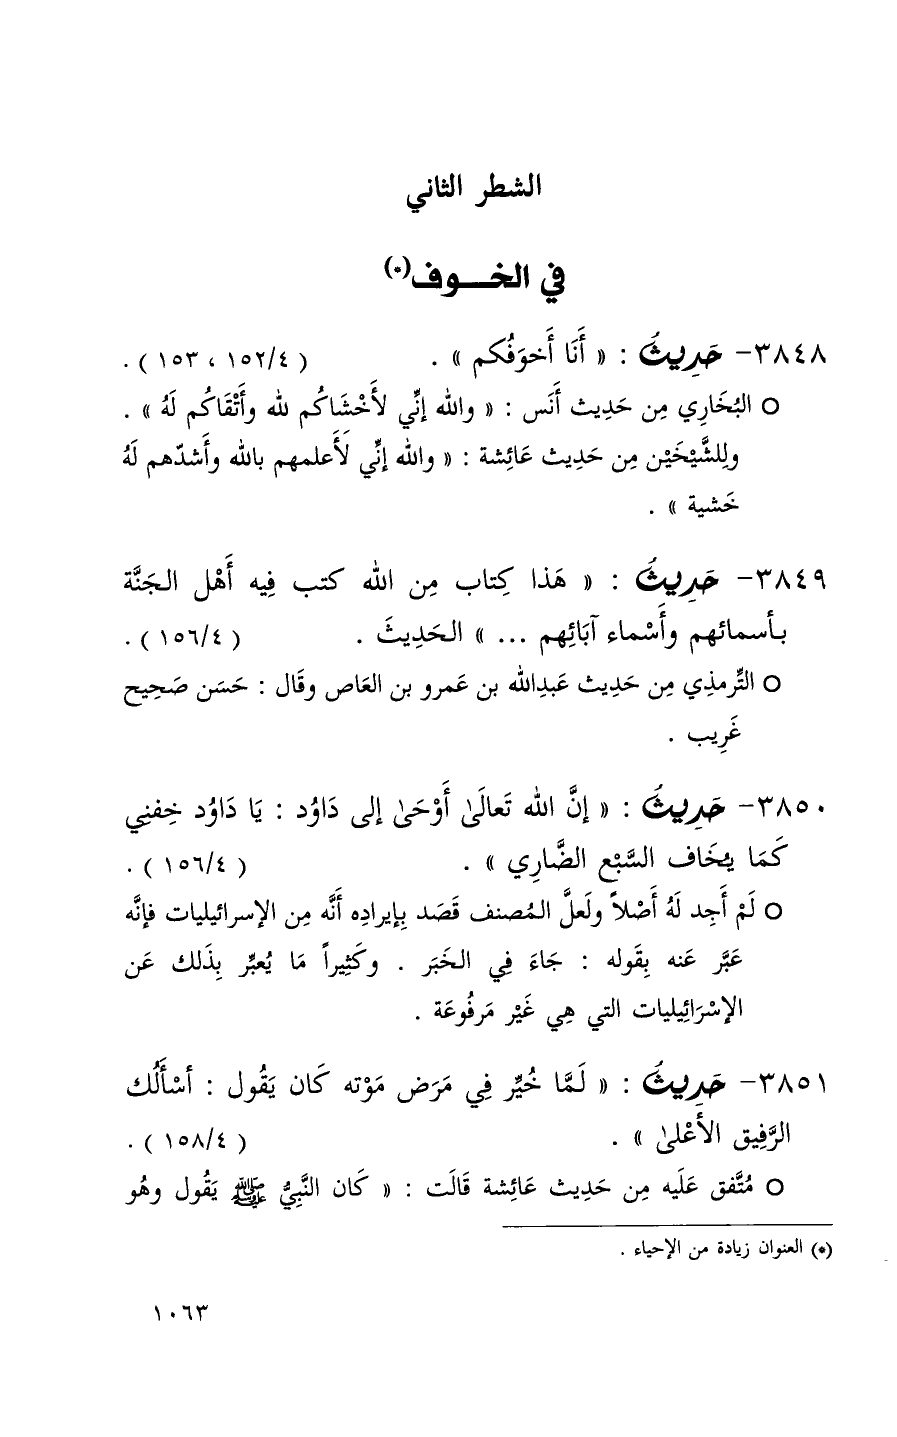 الشطر الثاني
في الخـــوف(*)
٣٨٤٨- حَدِيثُ : « أَنَا أَخوَفُكم » . ( ١٥٢/٤ ، ١٥٣ ) .
○ البُخَارِي مِن حَدِيث أَنَس : « والله إنِّي لأَخْشَاكُم لله وأَتْقَاكُم لَهُ » .
ولِلشَّيْخَيْن مِن حَدِيث عَائِشة : « والله إنِّي لَأَعلمهم بالله وأَشدّهم لَهُ
خَشية » .
٣٨٤٩- حَدِيثُ : « هَذا كِتاب مِن الله كتب فِيه أَهْل الجَنَّة
بأَسمائهم وأَسْماء آبَائِهم ... » الحَدِيثَ . ( ١٥٦/٤ ) .
○ التِّرمذِي مِن حَدِيث عَبدِالله بن عَمرو بن العَاص وقَال : حَسَن صَحِيح
غَرِيب .
٣٨٥٠- حَدِيثُ : « إنَّ الله تَعالَىٰ أَوْحَىٰ إلى دَاوُد : يَا دَاوُد خِفنِي
كَمَا يُخَاف السَّبْع الضَّارِي » . ( ١٥٦/٤ ) .
○ لَمْ أَجِد لَهُ أَصْلاً ولَعلَّ المُصنف قَصَد بِإيرادِه أَنَّه مِن الإسرائيليات فإنَّه
عَبَّر عَنه بِقَوله : جَاءَ فِي الخَبَر . وكَثِيراً مَا يُعبِّر بِذَلك عَن
الإسْرَائِيليات التي هِي غَيْر مَرفُوعَة .
٣٨٥١- حَدِيثُ : « لَمَّا خُيِّر فِي مَرَض مَوْته كَان يَقُول : أَسْأَلُك
الرَّفِيق الأَعْلىٰ » . ( ١٥٨/٤ ) .
○ مُتَّفق عَلَيه مِن حَدِيث عَائِشة قَالَت : « كَان النَّبِيُّ ﷺ يَقُول وهُو
(*) العنوان زيادة من الإحياء .
١٠٦٣